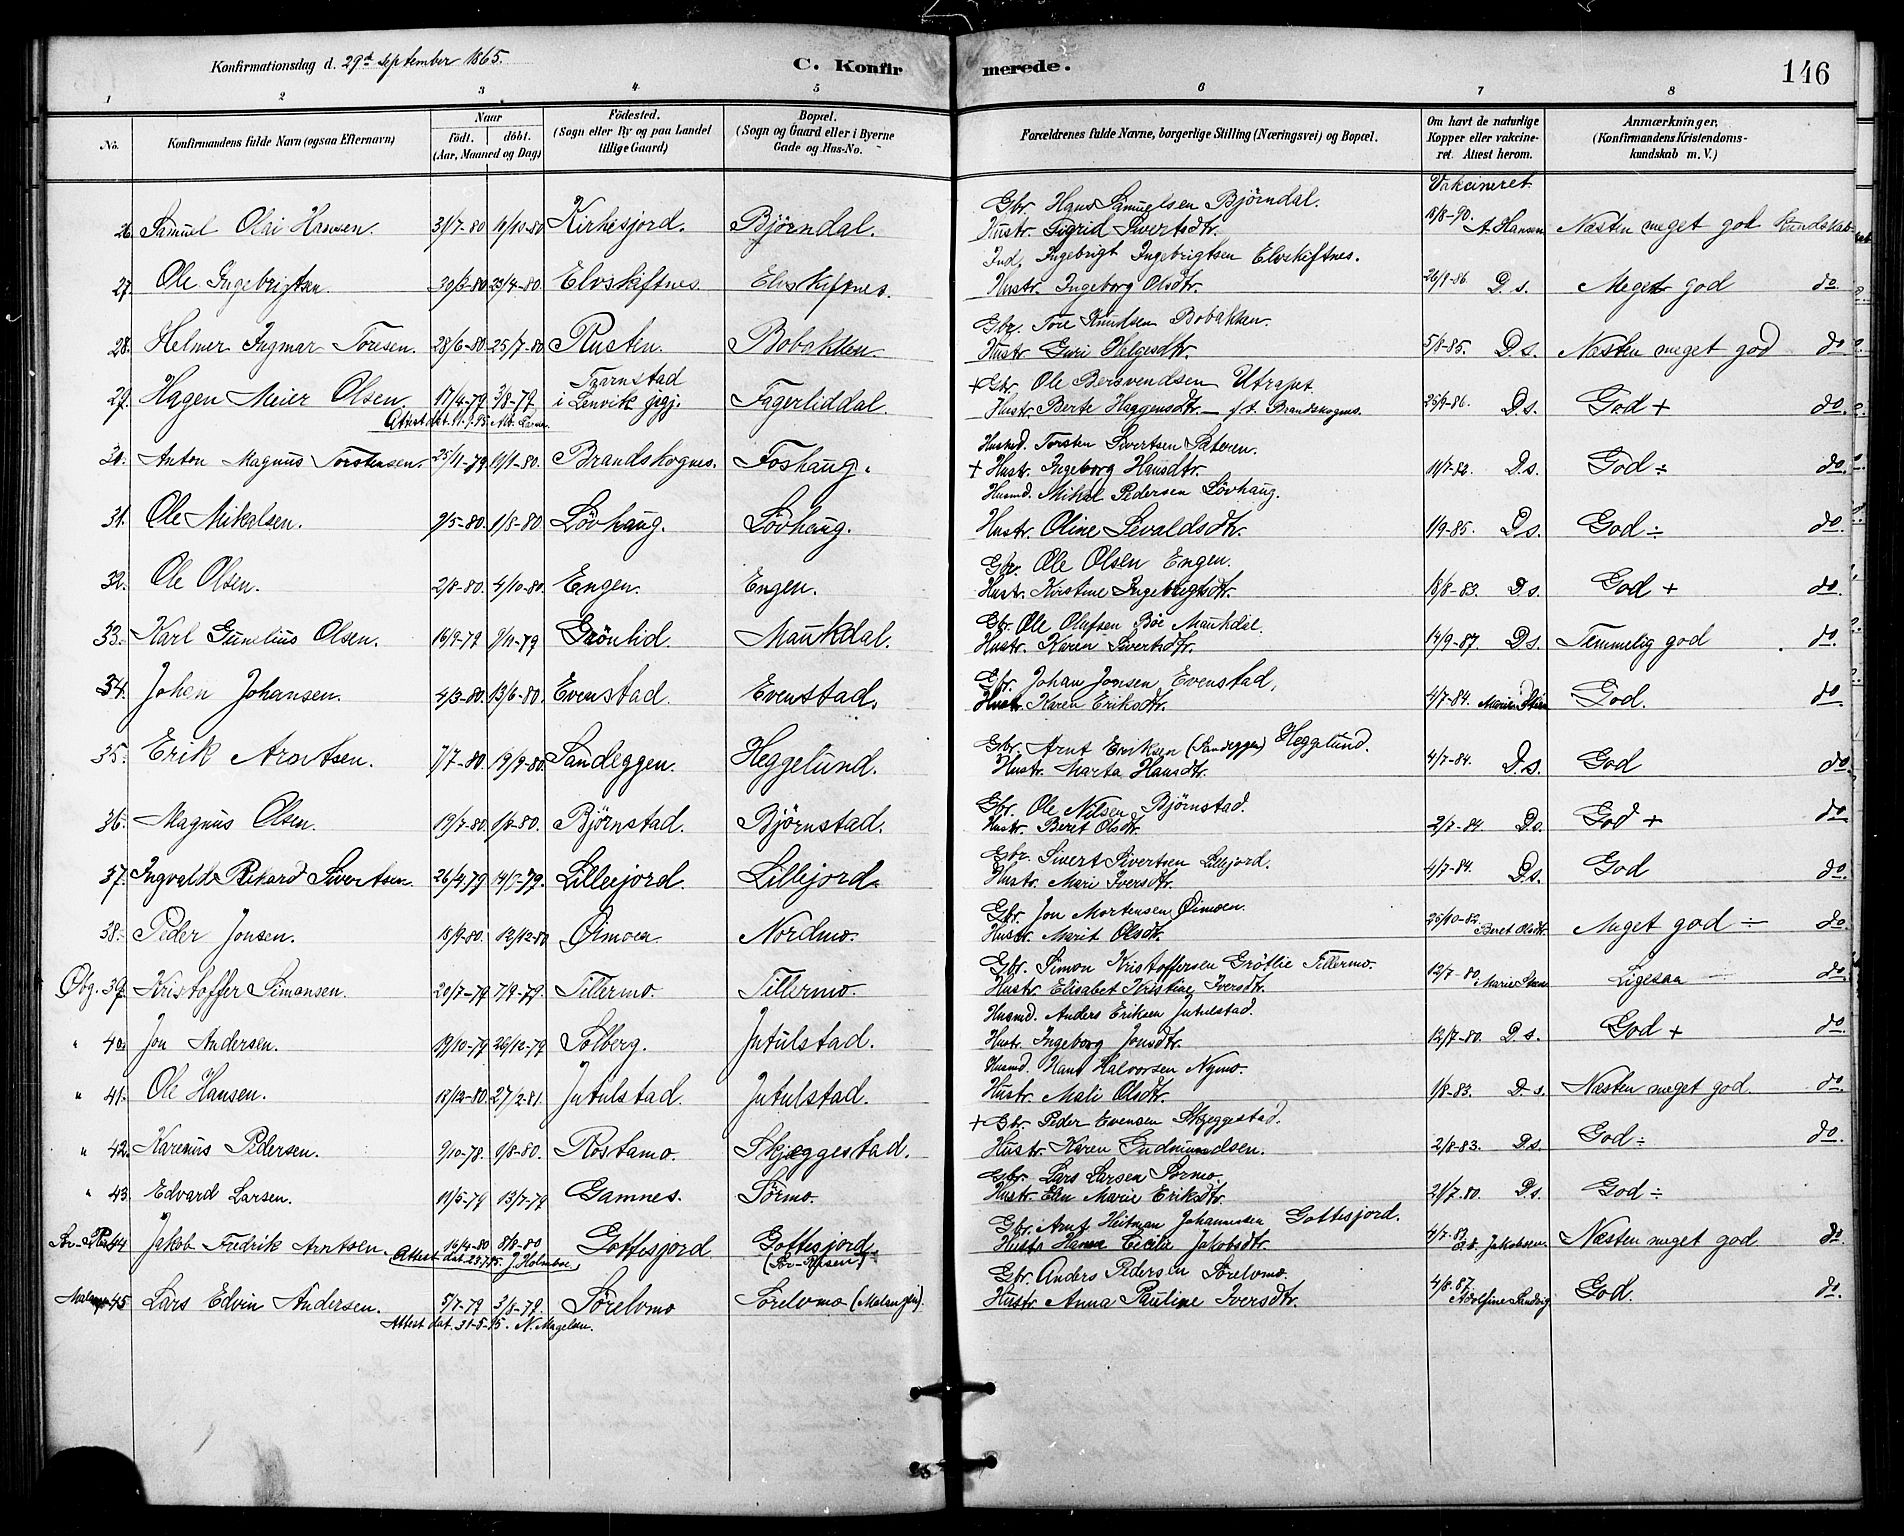 Konfirmationsdag d. 29de September 1865. C. Konfirmerede. 146
1 2 3 4 5 6 7 8
No. Konfirmandens fulde Navn (ogsaa Efternavn) Naar födt. döbt. (Aar, Maaned og Dag) Födested. (Sogn eller By og paa Landet tillige Gaard) Bopæl. (Sogn og Gaard eller i Byerne Gade og Hus-No. Forældrenes fulde Navne, borgerlige Stilling (Næringsvei) og Bopæl. Om havt de naturlige Kopper eller vakcineret. Attest herom. Anmærkninger, (Konfirmandens Kristendomskundskab m. V.)
Vakcineret
Gbr. Hans Samuelsen Björndal.
26. Samuel Olai Hansen. 31/7-80 10/10-80 Kirkesjord. Björndal. Hustr. Sigrid Sivertsdtr. 18/8-90. A. Hansen Næsten meget god Kundskab
Ind. Ingebrigt Ingebrigtsen Elveskiftnes.
27. Ole Ingebrigtsen 30/3-80 23/4-80. Elvskiftnes. Elvskiftnes. Hustr. Ingeborg Olsdtr. 26/9-86. D.s. Meget god do.
Gbr. Tore Knudsen Bobakken.
28. Helmer Ingmar Toresen. 28/6-80 25/7-80 Rusten. Bobakken Hustr. Guri Helgesdtr. 5/8-85. D.s. Næsten meget god do
+ Gbr. Ole Bersvendsen Utrapet
29. Hagen Meier Olsen 17/4-79 3/8-79 Transtad i Lenvik pgj. Fagerliddal. Hustr. Berte Haggensdtr. f.t. Brandskognes. 25/9-86. D.s. God + do.
Attest dat. 11/9.95. Alb. Larsen
Husmd. Torsten Sivertsen Sæteren.
30. Anton Magnus Torstensen. 25/11-79 19/1-80. Brandskognes. Foshaug. + Hustr. Ingeborg Hansdtr. 11/7-82. D.s. God ÷ do.
Husmd. Mikal Pedersen Lövhaug.
31. Ole Mikalsen. 9/5-80. 1/8-80 Lövhaug. Lövhaug. Hustr. Oline Sivaldsdtr. 1/9-85. D.s. God ÷ do.
Gbr. Ole Olsen Engen.
32. Ole Olsen. 2/8-80. 4/10-80. Engen. Engen. Hustr. Kristine Ingebrigtsdtr. 18/8-83. D.s. God + do.
Gbr. Ole Olufsen Böe Maukdal.
33. Karl Gunelius Olsen. 16/9-79 9/11-79 Grönlid. Maukdal. Hustr. Karen Sivertsdtr. 14/9-87. D.s. Temmelig god do.
Gbr. Johan Jonsen Evenstad.
34. Johan Johansen. 4/3-80. 13/6-80. Evenstad. Evenstad. Hustr. Karen Eriksdtr. 4/7-84. God. do
Gbr. Arnt Eriksen (Sandeggen) Heggelund.
35. Erik Arntsen. 7/7-80 19/9-80. Sandeggen. Heggelund. Hustr. Marta Hansdtr. 4/7-84. D.s. God do
Gbr. Ole Nilsen Björnstad.
36. Magnus Olsen. 19/7-80. 1/8-80. Björnstad. Björnstad. Hustr. Beret Olsdtr. 2/7-84. D.s. God + do
Gbr. Sivert Sivertsen Lillejord.
37. Ingvald Rikard Sivertsen. 26/4-79 14/7-79. Lillejord. Lillejord. Hustr. Mari Iversdtr. 4/7-84. D.s. God do.
Gbr. Jon Mortensen Öimoen.
38. Peder Jonsen. 18/9-80. 12/12-80 Öimoen. Nordmo. Hustr. Marit Olsdtr. 25/10-82. Beret Olsdtr. Meget god ÷ do.
Gbr. Simon Kristoffersen Grötlie Tillermo.
Obg. 39. Kristoffer Simonsen. 20/7-79 7/9-79. Tillermo. Tillermo. Hustr. Elisabet Kristine Iversdtr. 12/7-80. Ligesaa do.
Husmd. Anders Eriksen Jutulstad.
" 40. Jon Andersen. 19/10-79 26/12-79 Solberg. Jutulstad. Hustr. Ingeborg Jonsdtr. 12/7-80. D.s. God + do.
Husmd. Hans Halvorsen Nymo.
" 41. Ole Hansen. 18/12-80 27/2-81. Jutulstad. Jutulstad. Hustr. Mali Olsdtr. 1/8-83. D.s. Næsten meget god. do.
+ Gbr. Peder Evensen Skjeggestad.
" 42. Karenus Pedersen. 9/10-78. 1/8-80. Rostamo. Skjæggestad. Hustr. Karen Gudmundsen. 2/8-83. D.s. God ÷ do
Gbr. Lars Larsen Sörmo.
" 43. Edvard Larsen. 19/5-79 13/7-79 Gamnes. Sörmo. Hustr. Elen Marie Eriksdtr. 21/7-80. D.s. God ÷
Gbr. Arnt Heitman Johannesen Gottesjord.
44 Jakob Fredrik Arntsen. 16/4-80 8/8-80 Gottesjord Gottesjord Hustr. Hanna Cecilia Jakobsdtr. 4/7-82. Jakobsen. Næsten meget god do
Attest dat. 23.7.95. J. Holmboe
Gbr. Anders Pedersen Sörelvmo.
45 Lars Edvin Andersen. 5/7-79 3/8-79. Sörelvmo Sörelvmo (Malangen). Hustr. Anna Pauline Iversdtr. 4/8.87. Adolfine Sandvig God. do.
Attest dat. 31-5-95. N. Magelsen.